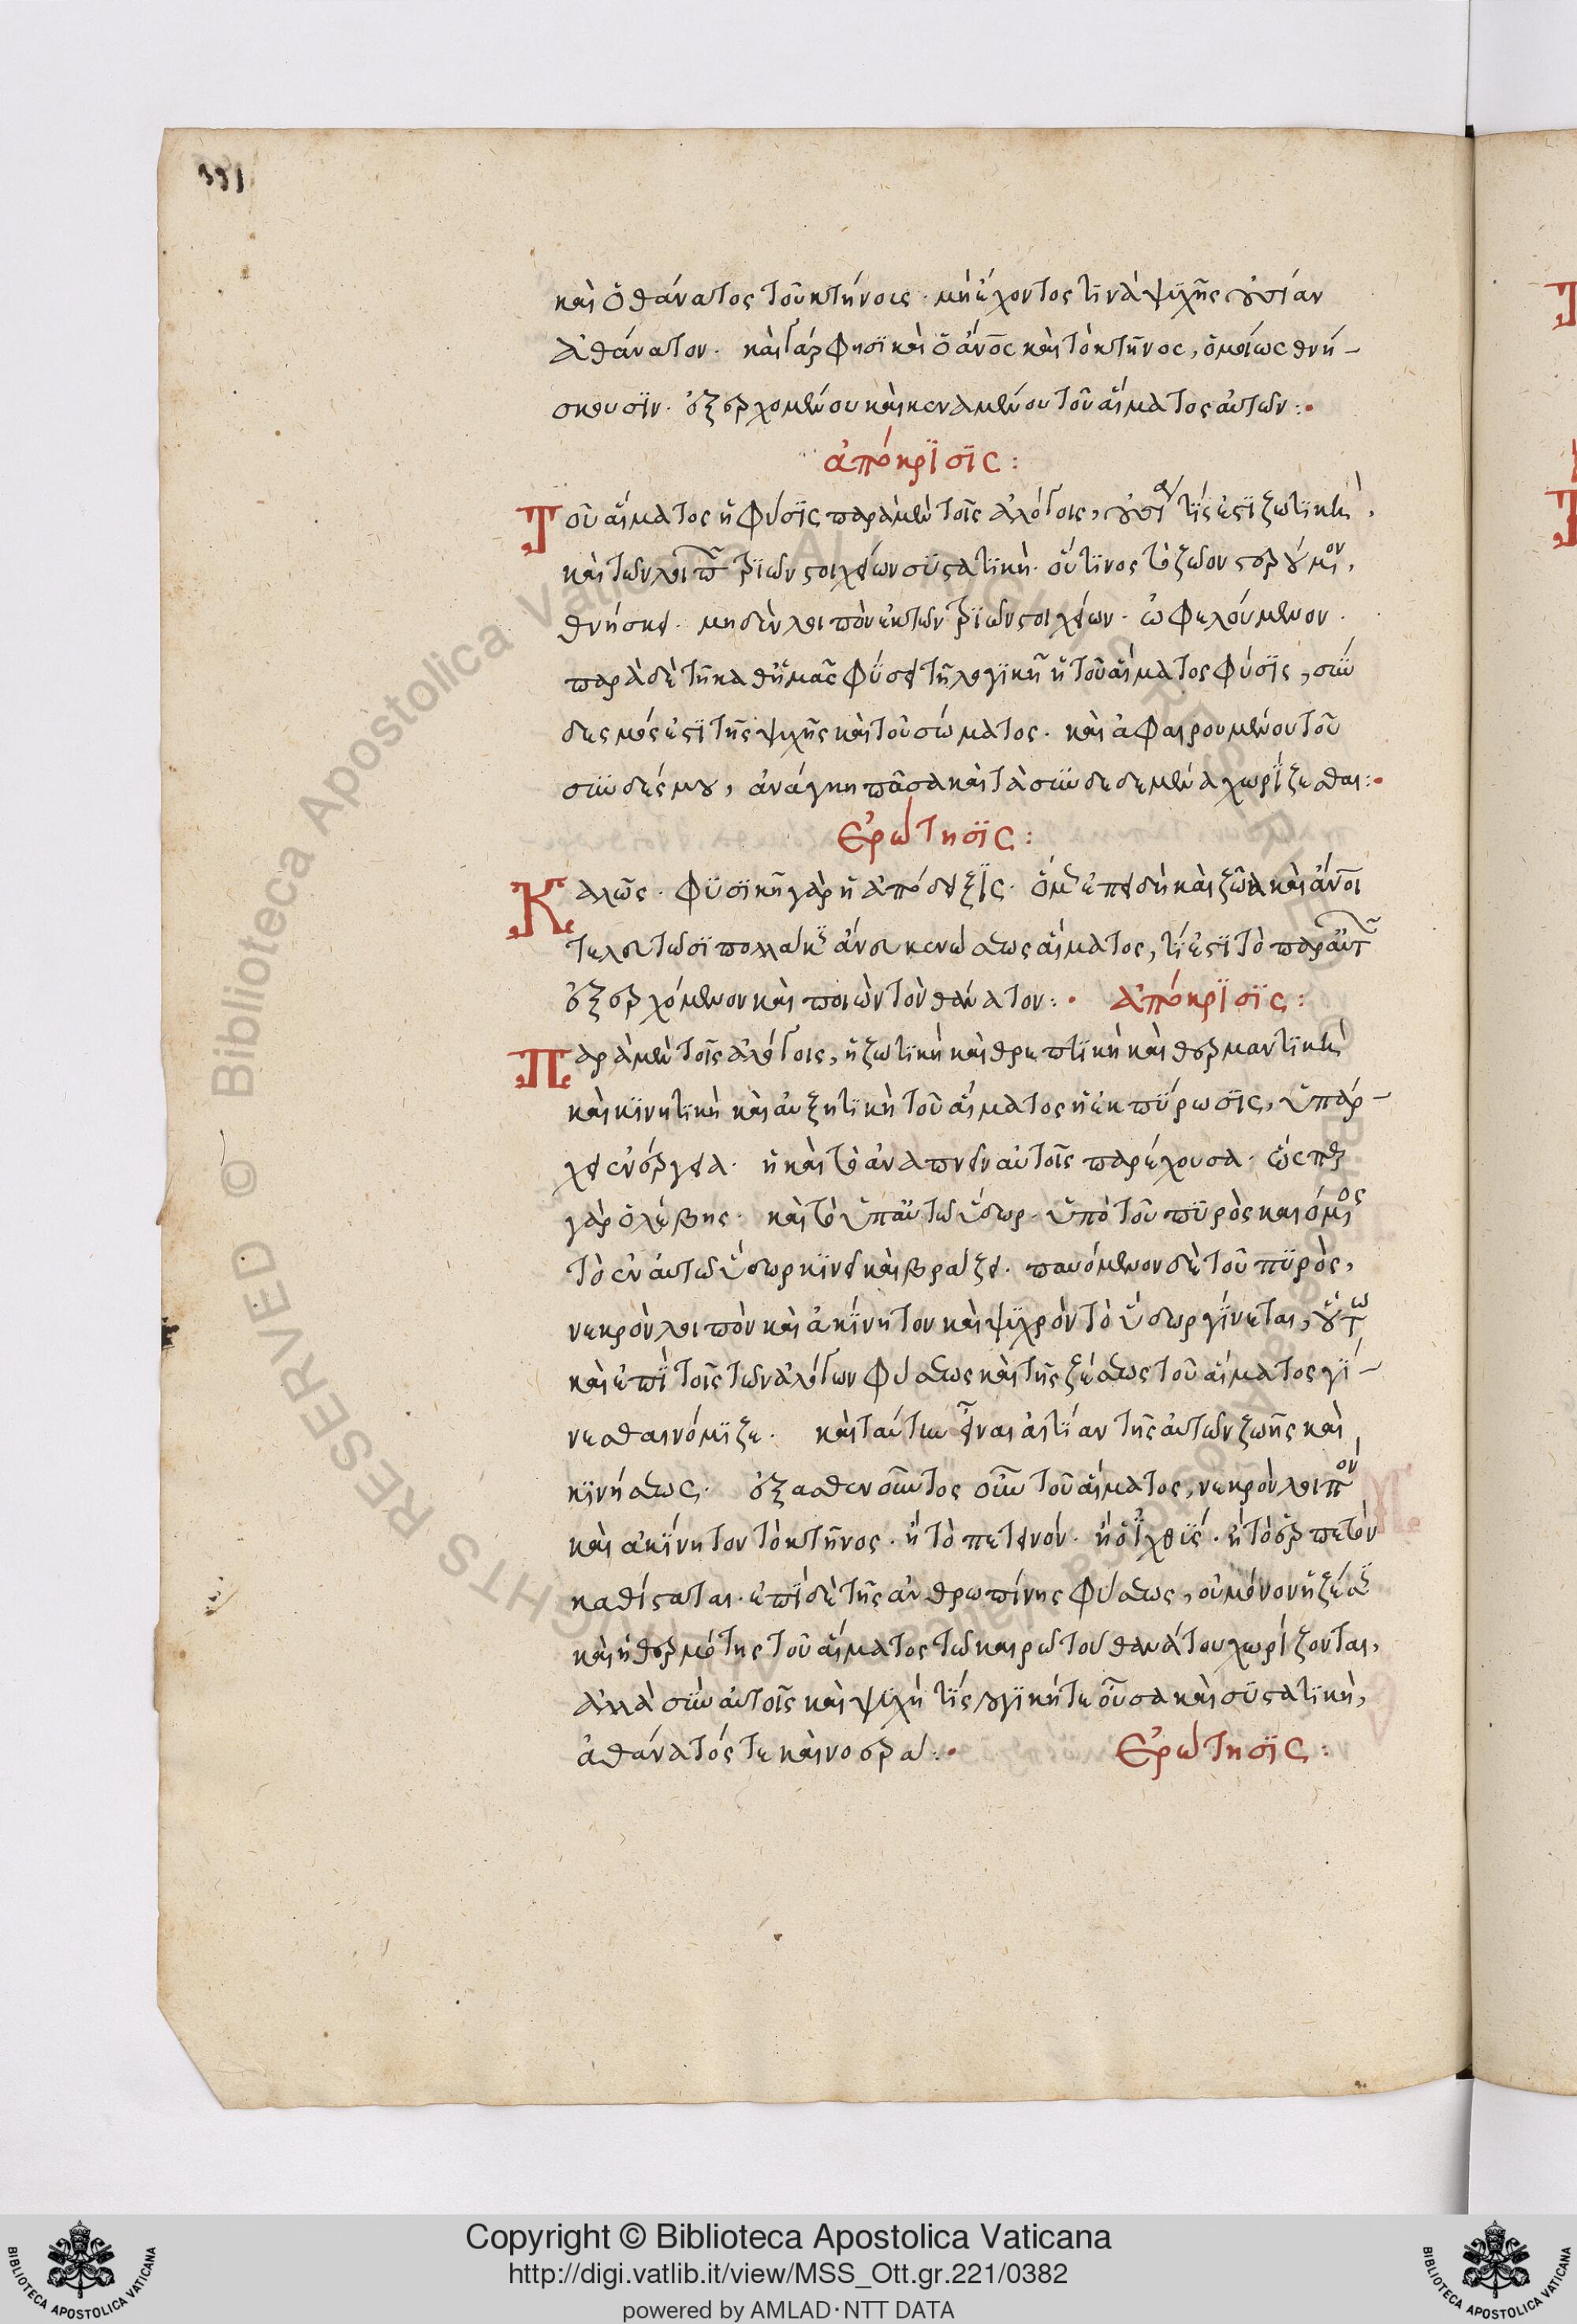 καὶ ὁ θάνατος τοῦ κτήνους· μὴ ἔχοντος τϊνὰ ψϋχῆς οὐσίαν
ἀθάνατον. καὶ γάρ φησϊ καὶ ὁ ἄνος καὶ τὸ κτῆνος, ὁμοίως θνή-
σκουσϊν. ἐξερχομένου καὶ κεναμένου τοῦ αἵματος αὐτῶν:·
ἀπόκρϊσϊς:
Τοῦ αἵματος ἡ φύσϊς παρὰ μὲν τοῖς ἀλόγοις, οὐσία τίς ἐστϊ ζωτϊκὴ,
καὶ τῶν λοιπ τρϊῶν στοιχείων σϋστατϊκὴ. οὕτινος τὸ ζῶον στερούμενον,
θνήσκει. μηδὲν λοιπὸν ἐκ τῶν τρϊῶν στοιχείων. ὠφελούμενον.
παρὰ δὲ τῆ καθἡμᾶς φύσει τῆ λογϊκῆ ἡ τοῦ αἵματος φύσϊς, σϋν
δεσμός ἐστϊ τῆς ψϋχῆς καὶ τοῦ σώματος. καὶ ἀφαιρουμένου τοῦ
σϋνδέσμου, ἀνάγκη πᾶσα καὶ τὰ σϋνδεδεμένα χωρΐζεσθαι:·
Ἐρώτησϊς:
Καλῶς. φϋσϊκὴ γὰρ ἡ ἀπόδειξϊς. ὅμως ἐπειδὴ καὶ ζῶα καὶ ἄνοι
τελευτῶσϊ πολλάκις ἄνευ κενώσεως αἵματος, τί ἐστϊ τὸ παρ αὐτ
ἐξερχόμενον καὶ ποιὼν τὸν θάνατον:· ἀπόκρϊσϊς:
Παρὰ μὲν τοῖς ἀλόγοις, ἡ ζωτϊκὴ καὶ θρεπτϊκὴ καὶ θερμαντϊκὴ
καὶ κϊνητϊκὴ καὶ αὐξητϊκὴ τοῦ αἵματος ἡ ἐκπΰρωσϊς, ὑπάρ-
χει ἐνέργεια. ἡ καὶ τὸ ἀναπνεῖν αὐτοῖς παρέχουσα. ὥσπερ
γὰρ ὁ λέβης. καὶ τὸ ὑπ αὐτῶ ὕδωρ. ὑπὸ τοῦ πϋρὸς καιόμενος
τὸ ἐν αὐτῶ ὕδωρ κϊνεῖ καὶ βράζει. παυόμενον δὲ τοῦ πϋρὸς,
νεκρὸν λοιπὸν καὶ ἀκΐνητον καὶ ψϋχρὸν τὸ ὕδωρ γΐνεται, οὕτω
καὶ ἐπῒ τοῖς τῶν ἀλόγων φύσεως καὶ τῆς ζέσεως τοῦ αἵματος γΐ-
νεσθαι νόμϊζε. καὶ ταύτην εἶναι αἰτΐαν τῆς αὐτῶν ζωῆς καὶ
κϊνήσεως. ἐξασθενοῦντος οὖν τοῦ αἵματος, νεκρὸν λοιπόν
καὶ ἀκΐνητον τὸ κτῆνος. ἢ τὸ πετεινόν. ἢ ὁ ἰχθῢς. ἢ τὸ ἑρπετὸν
καθίσταται. ἐπῒ δὲ τῆς ἀνθρωπίνης φύσεως, οὐ μόνον ἡ ζέσις
καὶ ἡ θερμότης τοῦ αἵματος τῶ καιρῶ τοῦ θανάτου χωρίζονται,
ἀλλὰ σϋν αὐτοῖς καὶ ψϋχὴ τΐς λογϊκή τε οὖσα καὶ σϋστατϊκὴ,
ἀθάνατός τε καὶ νοερά:· Ἐρώτησϊς:
Copyright © Biblioteca Apostolica Vaticana
http://digi.vatlib.it/view/MSS_Ott.gr.221/0382
powered by AMLAD·NTT DATA